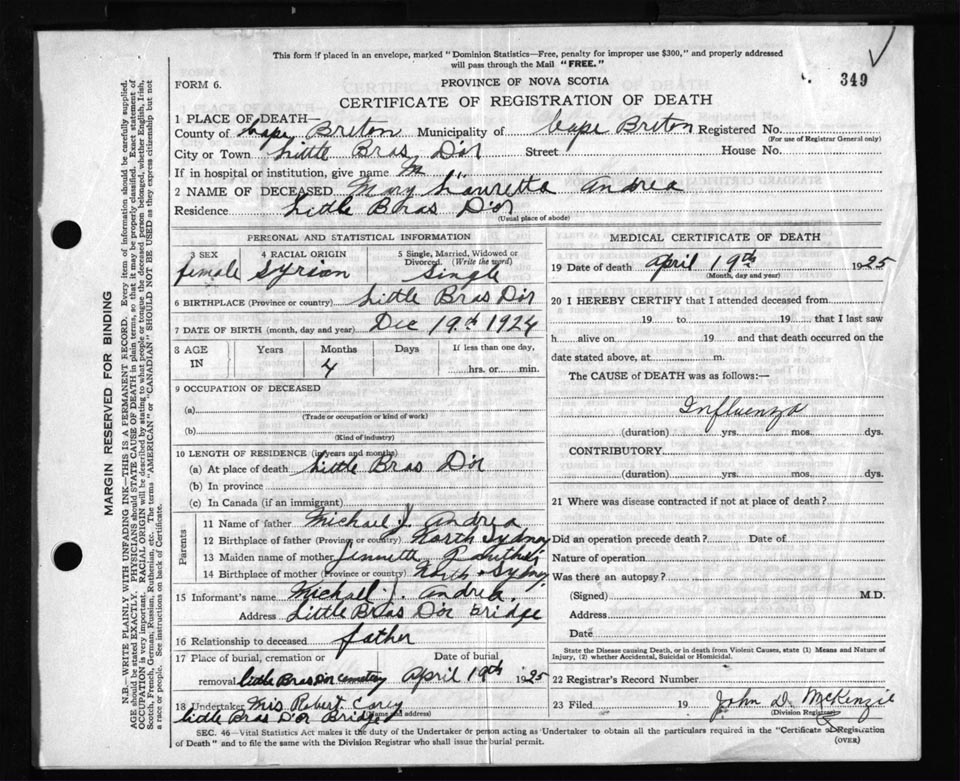 This form if placed in an envelope, marked "Dominion Statistics—Free, penalty for improper use $300," and properly addressed
will pass through the Mail "FREE."
349
FORM 6.
PROVINCE OF NOVA SCOTIA
CERTIFICATE OF REGISTRATION OF DEATH
1 PLACE OF DEATH—
County of Cape Breton Municipality of Cape Breton Registered No.
(For use of Registrar General only)
City or Town Little Bras D'or Street House No.
If in hospital or institution, give name
2 NAME OF DECEASED Mary Lauretta Andrea
Residence Little Bras D'or
(Usual place of abode)
PERSONAL AND STATISTICAL INFORMATION
3 SEX 4 RACIAL ORIGIN 5 Single, Married, Widowed or
Divorced. (Write the word)
female Syrian Single
6 BIRTHPLACE (Province or country) Little Bras D'or
7 DATE OF BIRTH (month, day and year) Dec 19th 1924
8 AGE IN Years Months Days If less than one day,
4 hrs. or min.
9 OCCUPATION OF DECEASED
(a)
(Trade or occupation or kind of work)
(b)
(Kind of industry)
10 LENGTH OF RESIDENCE (in years and months)
(a) At place of death Little Bras D'or
(b) In province
(c) In Canada (if an immigrant)
Parents
11 Name of father Michael J. Andrea
12 Birthplace of father (Province or country) North Sydney
13 Maiden name of mother Jennette
14 Birthplace of mother (Province or country) North Sydney
15 Informant's name Michael J. Andrea
Address Little Bras D'or bridge
16 Relationship to deceased father
17 Place of burial, cremation or Date of burial
removal Little Bras D'or Cemetery April 19th 1925
18 Undertaker Mrs Robert Carey
(Name and address)
Little Bras D'or Bridge
MEDICAL CERTIFICATE OF DEATH
19 Date of death April 19th 1925
(Month, day and year)
20 I HEREBY CERTIFY that I attended deceased from
19 to 19 that I last saw
h alive on 19 and that death occurred on the
date stated above, at m.
The CAUSE of DEATH was as follows:—
Influenza
(duration) yrs. mos. dys.
CONTRIBUTORY.
(duration) yrs. mos. dys.
21 Where was disease contracted if not at place of death?
Did an operation precede death? Date of
Nature of operation
Was there an autopsy?
(Signed) M.D.
Address
Date
State the Disease causing Death, or in death from Violent Causes, state (1) Means and Nature of
Injury, (2) whether Accidental, Suicidal or Homicidal.
22 Registrar's Record Number
23 Filed 19 John D. McKenzie
(Division Registrar)
SEC. 46—Vital Statistics Act makes it the duty of the Undertaker or person acting as Undertaker to obtain all the particulars required in the "Certificate of Registration
of Death" and to file the same with the Division Registrar who shall issue the burial permit.
(OVER)
MARGIN RESERVED FOR BINDING
N.B.—WRITE PLAINLY WITH UNFADING INK—THIS IS A PERMANENT RECORD. Every item of information should be carefully supplied.
AGE should be stated EXACTLY. PHYSICIANS should STATE CAUSE OF DEATH in plain terms, so that it may be properly classified. Exact statement of
OCCUPATION is very important. RACIAL ORIGIN will be described by stating to what people or tongue the deceased person belonged, whether English, Irish,
Scotch, French, German, Russian, Ruthenian, etc. The terms "AMERICAN" or "CANADIAN" SHOULD NOT BE USED as they express citizenship but not
a race or people. See instructions on back of Certificate.